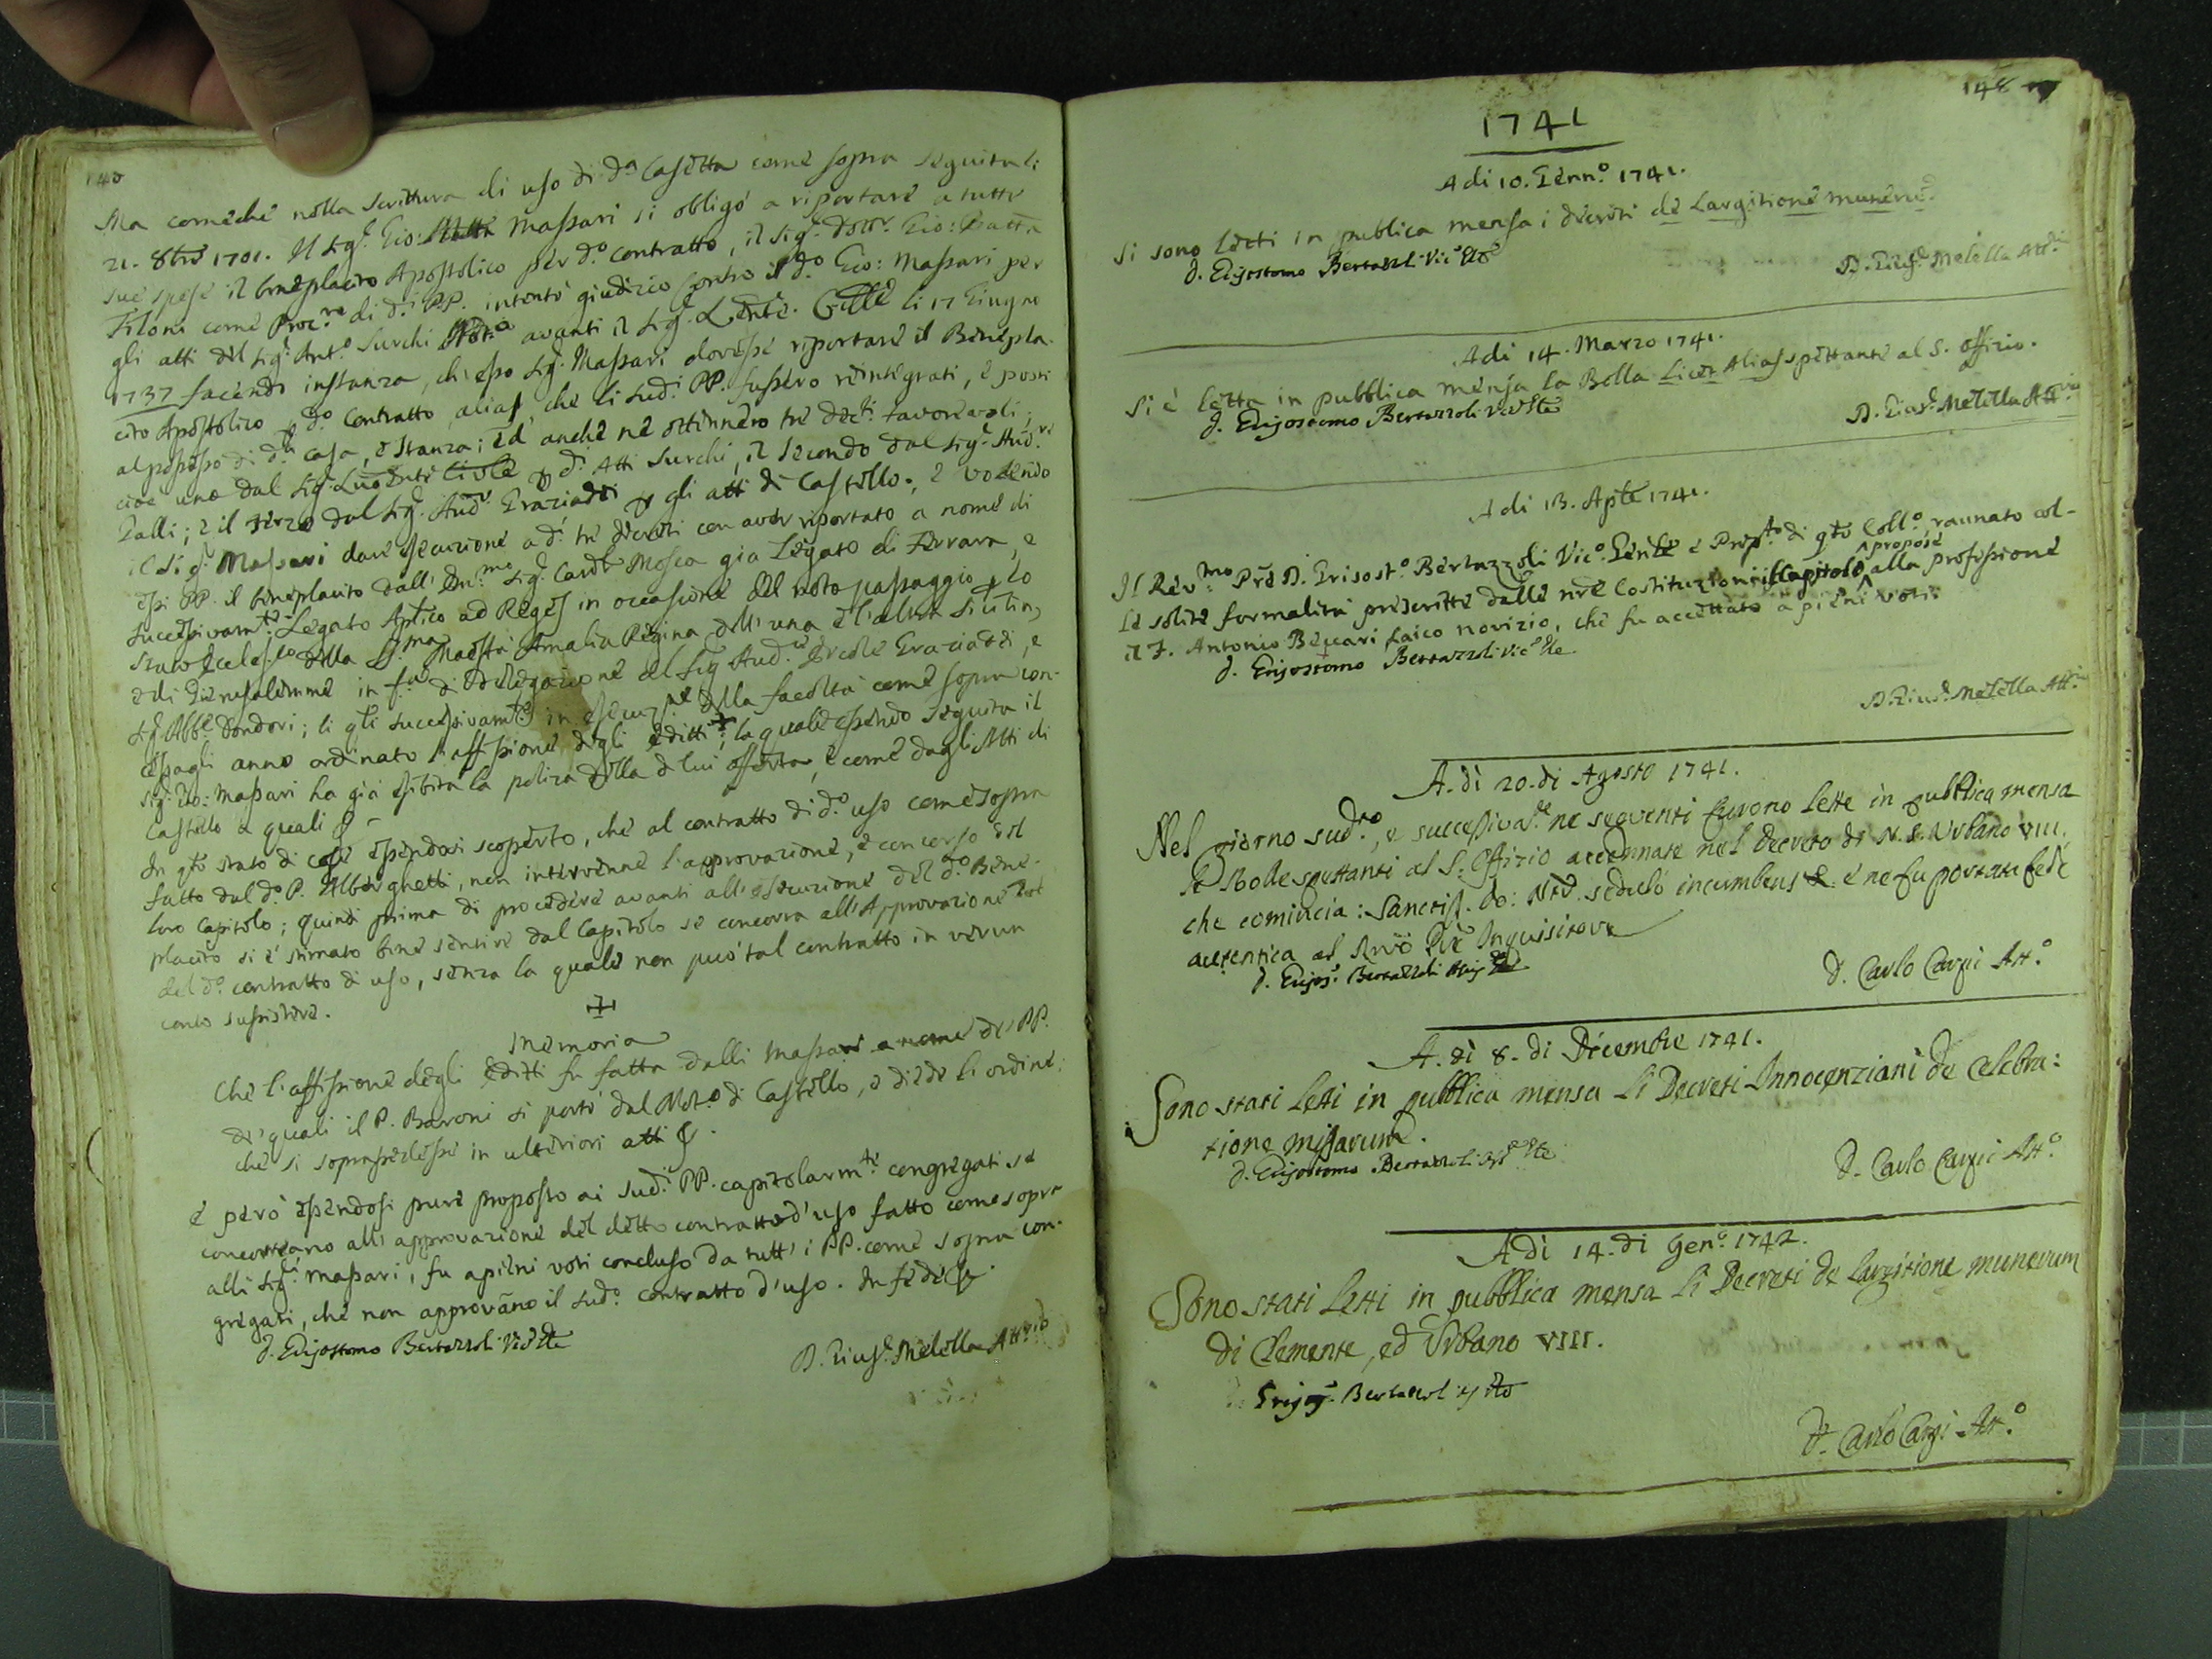 140
Ma comeche nella scrittura di uso di d.a Casetta come sopra seguita li
21. 8bre 1701. Il Sig.r Gio: Massari si obligó a riportare a tutte
sue spese il beneplacito Apostolico per d.o contratto, il Sig.r Dott.r Gio: Batta
Filoni come Proc.re di d.i PP. intentó giudizio contro il d.o Gio: Massari per
gli atti del Sig.r Ant.o Surchi Not.o avanti il Sig.r li 17 Giugno
1737 facendo instanza, ch'esso Sig.r Massari dovesse riportare il Benepla-
cito Apostolico p d.o Contratto, alias, che li sud.i PP. fussero reintegrati, e posti
al possesso di d.a casa, e stanza; ed anche ne ottennero tre dec.ti favorevoli;
cioe uno dal Sig.r Luog̅nte Civile p d.i Atti Surchi, il secondo dal Sig.r Aud.re
Galli; e il terzo dal Sig.r Aud.r Graziadei p gli atti di Castello., e volendo
il Sig.r Massari dare esecuzione a d.i tre decreti con aver riportato a nome di
essi PP. il beneplacito dall' Em.mo Sig.r Card.l Mosca gia Legato di Ferrara, e
successivam.te Legato Aplico ad Reges in occasione del noto passaggio p lo
Stato Eccles.co della S. Maestá Amalia Regina dell'una e l'altra Sicilia,
e di Gierusalemme in f.a di Delegazione del Sig.r Aud.re Ercole Graziadei, e
Sig.r Abb.e Dondori; li q̅li successivam.te in esecuz.ne della facoltá come sopra con-
cessagli anno ordinato l'affissione degli editti; la quale essendo seguita il
Sig.r Gio: Massari ha giá esibita la poliza della di lui offerta, e come dagli Atti di
Castello a quali &
In q̅to stato di cose essendosi scoperto, che al contratto di d.o uso come sopra
fatto dal d.o P. Alberghetti, non intervenne l'approvazione, e concorso del
loro Capitolo; quindi prima di procedere avanti all'esecuzione del d.o Bene-
placito si é stimato bene sentire dal Capitolo se concorra all'Approvazione
del d.o contratto di uso, senza la quale non puó tal contratto in verun
conto sussistere.
Memoria
Che l'affissione degli editti fu fatta dalli Massari a nome de' PP.
de' quali il P. Baroni si portó dal Not.o di Castello, e diede l'ordine,
che si soprasedesse in ulteriori atti &.
E peró essendosi pure proposto ai sud.i PP. capitolarm.te congregati se
concorreano all'approvazione del detto contratto d'uso fatto come sopra
alli Sig.ri Massari, fu a pieni voti concluso da tutt'i PP. come sopra con-
gregati, che non approvano il sud.o contratto d'uso. In fede &.
d. Grisostomo Bertazzoli Vic.o G̅le
D. Gius.e Melella Att.rio
148
1741
A di 10. Genn.o 1741.
Si sono letti in publica mensa i decreti de Largitione munerũ.
d. Grisostomo Bertazzoli Vic.o G̅le
D. Gius.e Melella Att.rio
A di 14. Marzo 1741.
Si é letta in pubblica mensa la Bolla Licet Alias spettante al S. Offizio.
d. Grisostomo Bertazzoli Vic.o G̅le
D. Gius.e Melella Att.rio
A di 13. Aple 1741.
Il Rev.mo Pre D. Grisost.o Bertazzoli Vic.o G̅enle e Prep.to di q̅to Coll.o raunato col-
le solite formalitá prescritte dalle nre Costituzioni il Capitolo propose alla professione
il F. Antonio Beccari laico novizio, che fu accettato a pieni voti.
d. Grisostomo Bertazzoli Vic.o G̅le
D. Gius.e Melella Att.rio
A. dì 20. di Agosto 1741.
Nel giorno sud.to, e successivam.te ne seguenti furono lette in pubblica mensa
le Bolle spettanti al S. Offizio accennate nel Decreto di N. S. Urbano VIII.
che comincia: Sanctiss. Do: Ntr. seduló incumbens &. e ne fu portata fede
autentica al Rmo Pre Inquisitore
d. Grisos. Bertazzoli
d. Carlo Carpi Att.o
A. dì 8. di Dicembre 1741.
Sono stati letti in pubblica mensa li Decreti Innocenziani de Celebra:
tione missarum.
d. Grisostomo Bertazzoli
d. Carlo Carpi Att.o
A dì 14. di Gen.o 1742.
Sono stati letti in pubblica mensa li Decreti de largitione munerum
di Clemente, ed Urbano VIII.
d. Grisos. Bertazzoli
d. Carlo Carpi Att.o